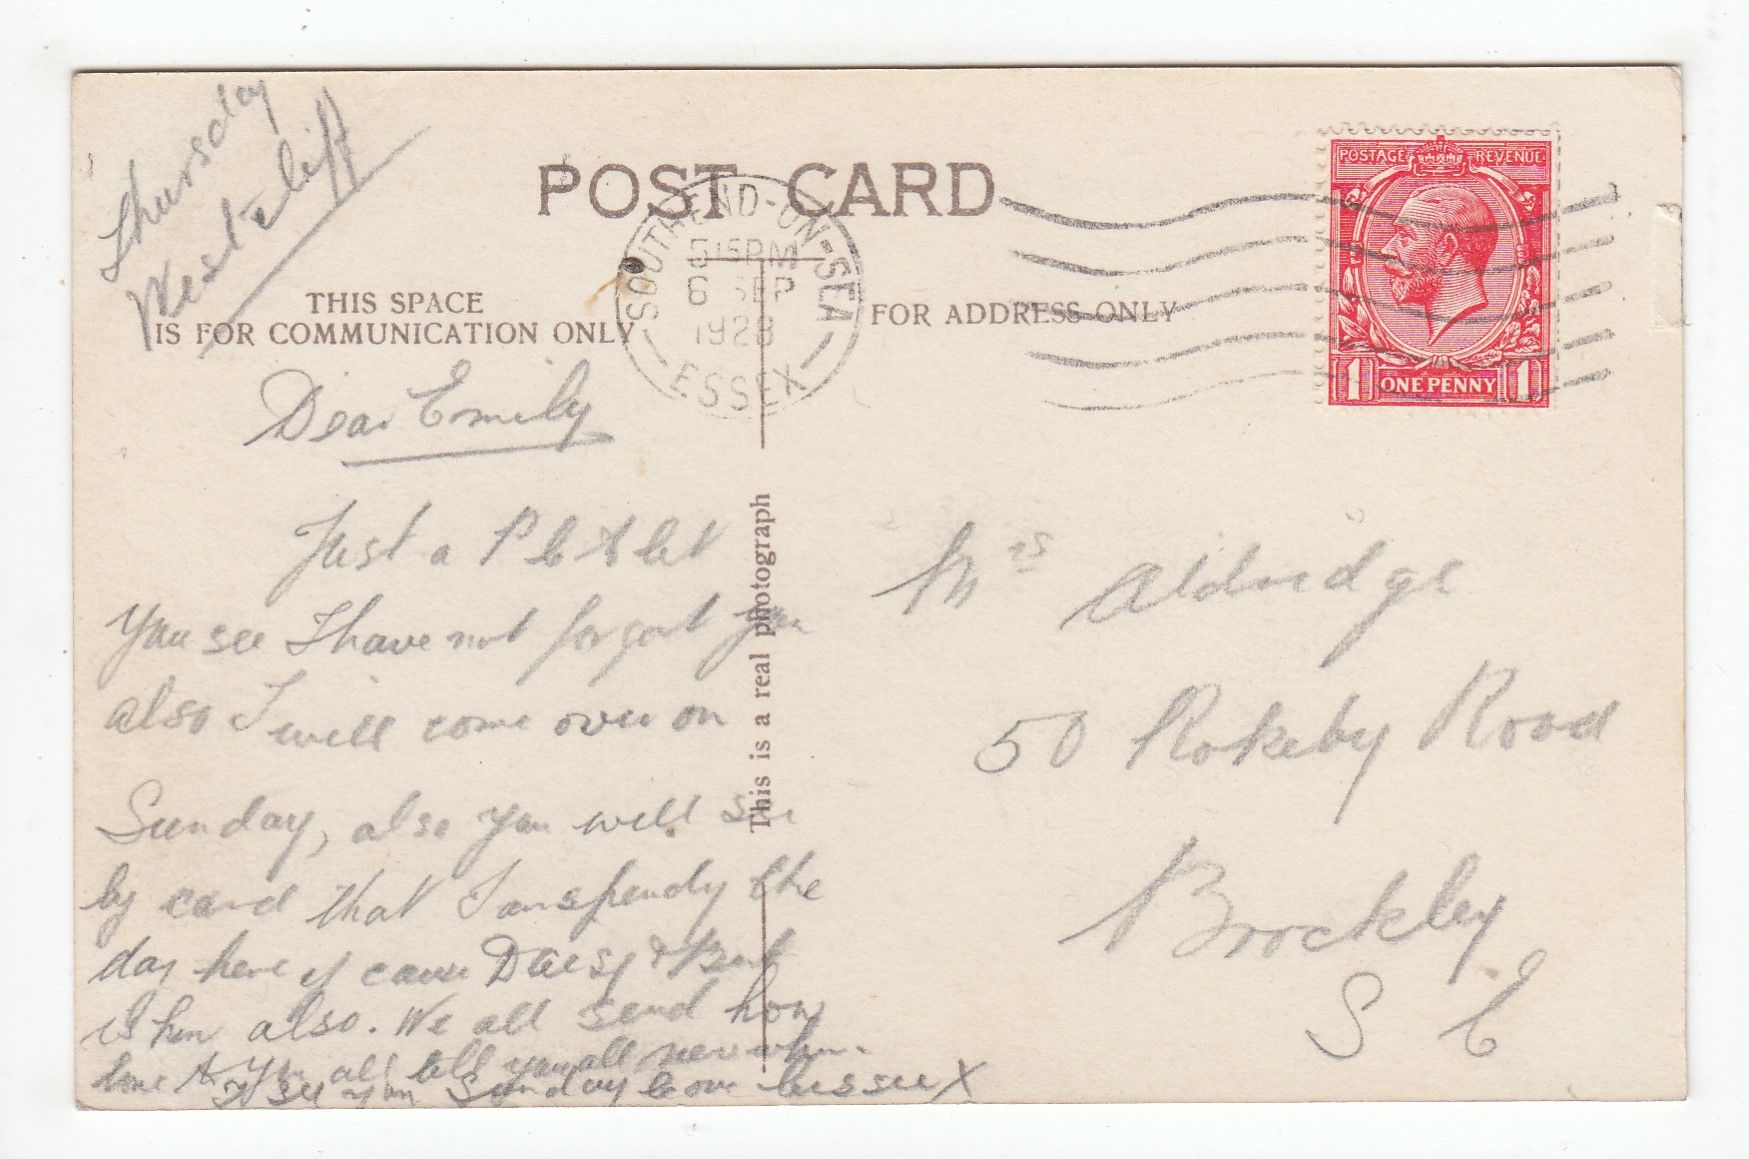 Thursday
Westcliff
POST CARD
SOUTHEND-ON-SEA
515PM
6 SEP
1928
ESSEX
POSTAGE REVENUE
1 ONE PENNY 1
THIS SPACE
IS FOR COMMUNICATION ONLY
FOR ADDRESS ONLY
Dear Emily
Just a P C to let
you see I have not forgot you
also I will come over on
Sunday, also you will see
by card that I am spendg the
day here of cause Daisy & Bert
is hear also. We all send
love to you all tell you all new when
I see you Sunday
This is a real photograph
Mrs Aldridge
50 Rokeby Road
Brockley
S E